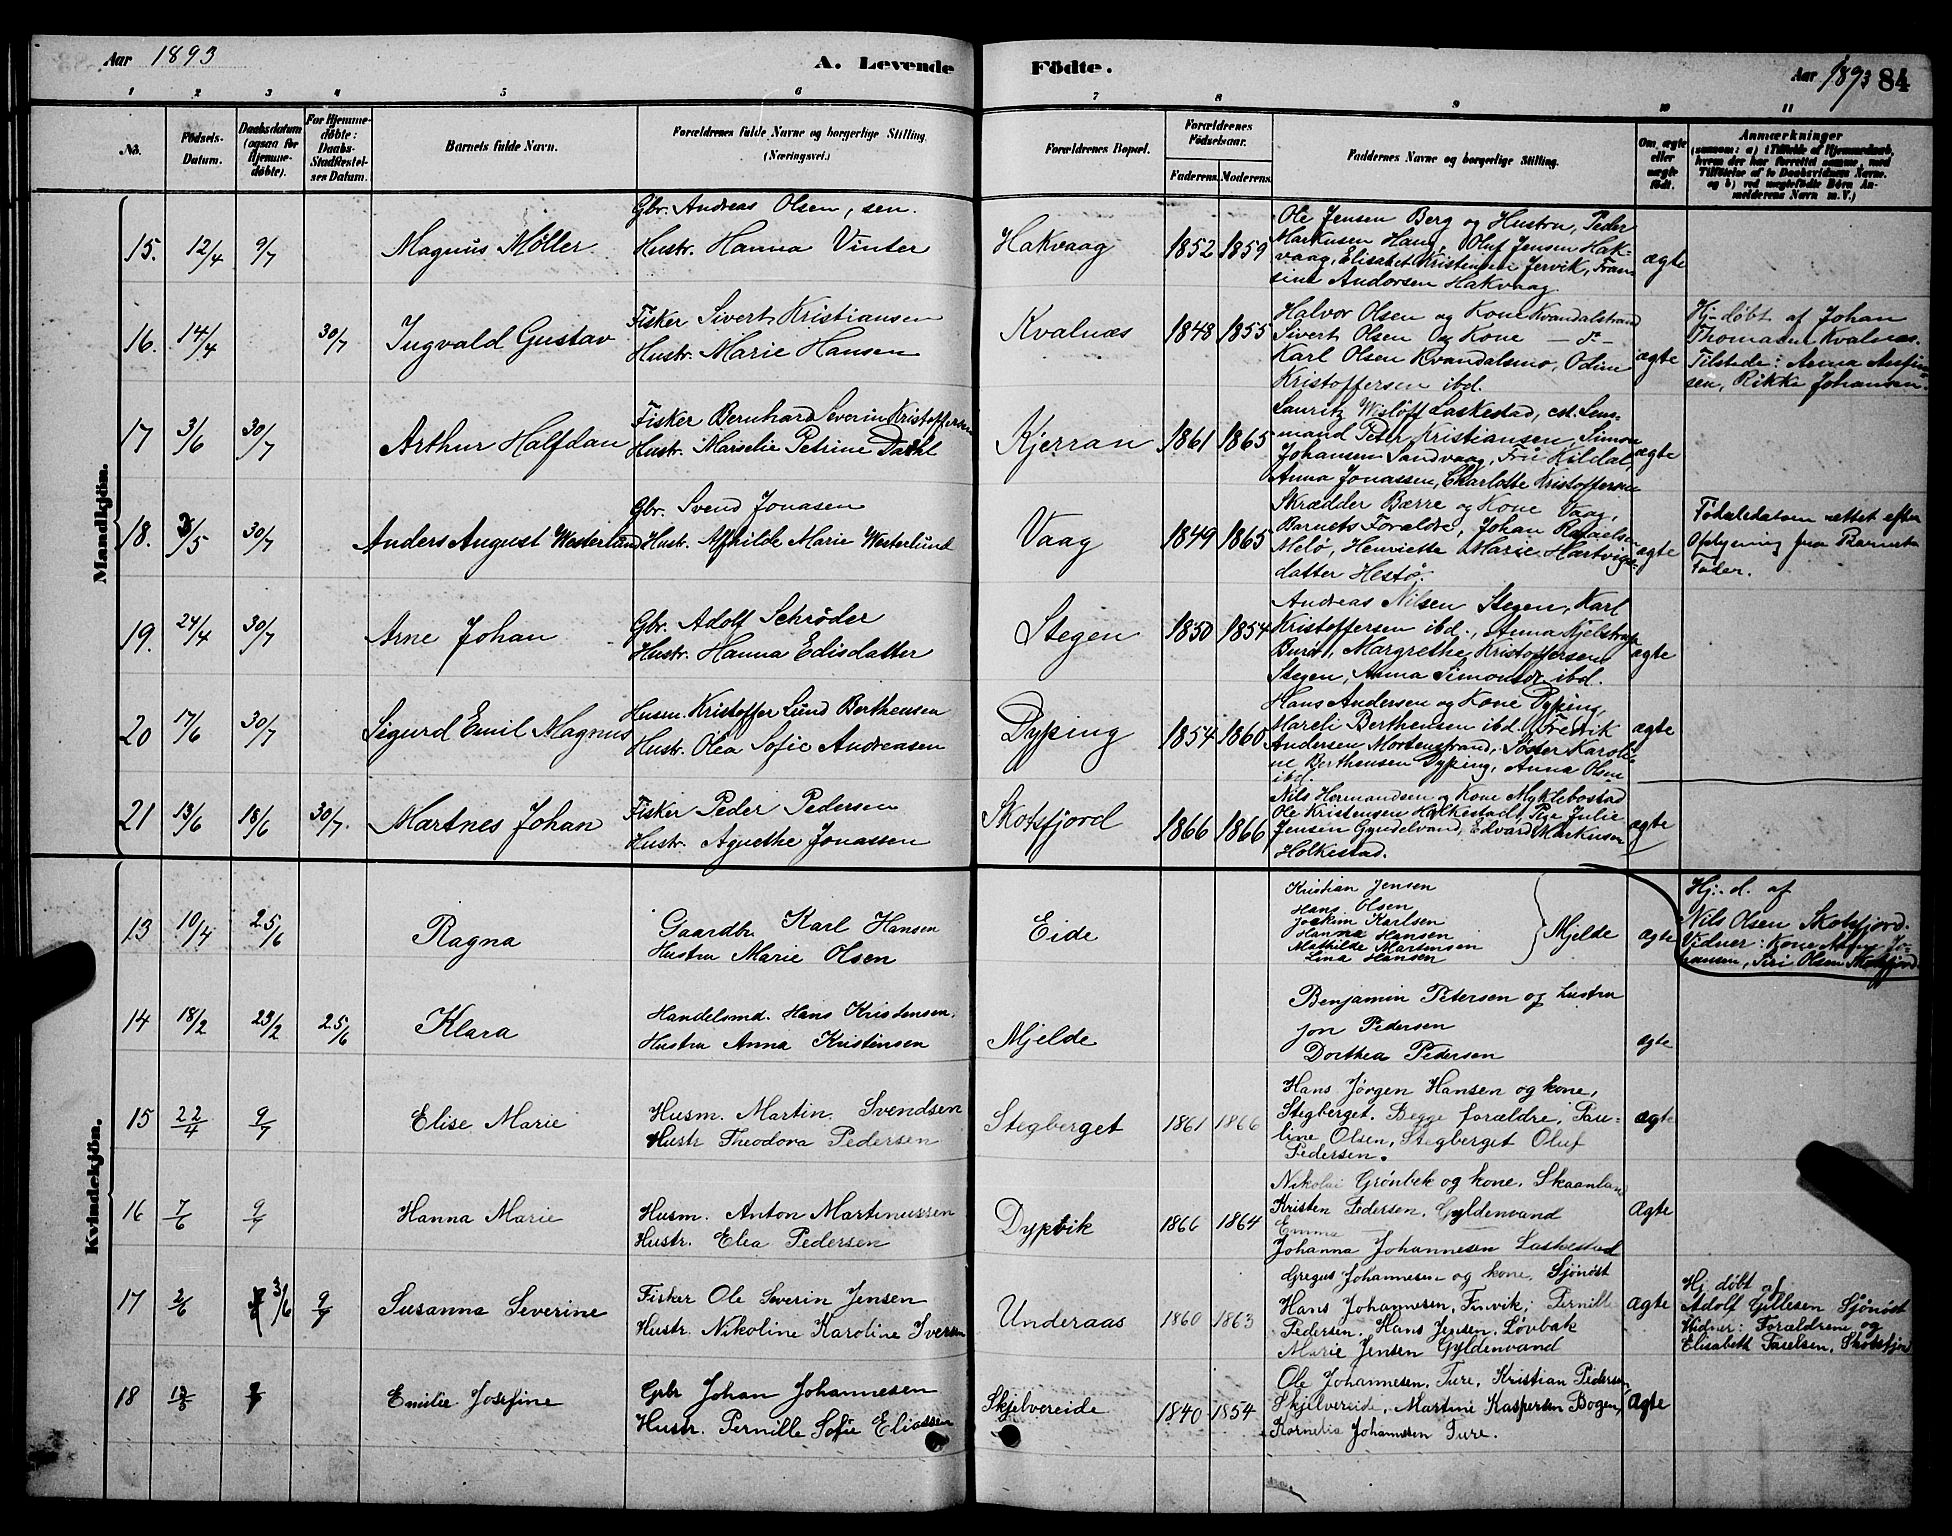 Aar 1893
A. Levende
Födte.
Aar 1893 84
1 2 3 4 5 6 7 8 9 10 11
No.
Födsels-
Datum.
Daabsdatum
(ogsaa for
Hjemme-
döbte).
For Hjemme-
döbte:
Daabs-
Stadfæstel-
ses Datum.
Barnets fulde Navn.
Forældrenes fulde Navne og borgerlige Stilling.
(Næringsvei.)
Forældrenes Bopæl.
Forældrenes
Födselsaar.
Faderens. Moderens.
Faddernes Navne og borgerlige Stilling.
Om ægte
eller
uægte
födt.
Anmærkninger
(saasom: a) i Tilfælde af Hjemmedaab,
hvem der har forrettet samme, med
Tilföielse af to Daabsvidners Navne.
og b) ved uægtefödte Börn An-
melderens Navn m. V.)
Mandkjön.
15. 12/4 9/7 Magnus Møller
Gbr. Andreas Olsen, sen.
Hustr. Hanna Vinter
Hakvaag 1852 1859
Ole Jensen Berg og Hustru, Peder
Markusen Haug, Oluf Jensen Hak-
vaag, Elisabet Kristensen Jervik, Fran-
sine Andorsen Hakvaag
ægte
16. 14/4 30/7 Ingvald Gustav
Fisker Sivert Kristiansen
Hustr. Marie Hansen
Kvalnæs 1848 1855
Halvor Olsen og Kone Kvandalstrand
Sivert Olsen og Kone
Karl Olsen Kvandalsmo, Odine
Kristoffersen ibd.
ægte
Hj-døbt af Johan
Kvalnæs.
Tilstede: Anna
sen, Rikke Johansen.
17 3/6 30/7 Arthur Halfdan
Fisker Bernhard Severin Kristoffersen
Hustr. Marselie Petrine Dahl
Kjerran 1861 1865
Lauritz Wisløff Laskestad, cst. Lens-
mand Peter Kristiansen, Simon
Johansen Sandvaag, Fru Kildal,
Anna Jonassen, Charlotte Kristoffersen
ægte
18. /5 30/7 Anders August Westerlund
Gbr. Svend Jonasen
Hustr. Afhilde Marie Westerlund
Vaag 1849 1865
Skrædder Bærre og Kone Vaag,
Barnets Forældre, Johan Rafaelsen
Melø, Henriette Marie Hartvigs-
datter Hestø.
ægte
Fødseledatum rettet efter
Oplysning fra Barnets
Fader.
19. 24/4 30/7 Arne Johan
Gbr. Adolf Schrøder
Hustr. Hanna Edisdatter
Stegen 1850 1854
Andreas Nilsen Stegen, Karl
Kristoffersen ibd., Anna Kjelstrup
Margrethe Kristoffersen
Stegen, Anna Simonsdr. ibd.
ægte
20 17/6 30/7 Sigurd Emil Magnus
Husm. Kristoffer Lund Berthensen
Hustr. Olea Sofie Andreasen
Dyping 1854 1860
Hans Andersen og Kone Dyping,
Mareli Berthensen ibd., Fredrik
Andersen Mortenstrand, Søster Karoli-
ne Berthensen Dyping, Anna Olsen
ibd.
ægte
21 13/6 18/6 30/7. Martnes Johan
Fisker Peder Pedersen
Hustr. Agnethe Jonassen
Skotsfjord 1866 1866
Nils Hermandsen og Kone Myklebostad
Ole Kristensen Holkestad, Pige Julie
Jensen Gyndelvand, Edvard Markusen
Holkestad.
ægte
Kvindekjön.
13 10/4 25/6 Ragna
Gaardbr. Karl Hansen
Hustru Marie Olsen
Eide
Kristian Jensen
Hans Olsen
Joakim Karlsen
Hanna Hansen
Mathilde Martensen
Lina Hansen
Mjelde
ægte
Hj. d. af
Nils Olsen Skotsfjord.
Vidner: Kone Jo-
hansen, Siri Olsen Skotsfjord
14 18/2 23/2 25/6 Klara
Handelsmd. Hans Kristensen.
Hustru Anna Kristensen
Mjelde
Benjamin Petersen og hustru
Jon Pedersen
Dorthea Pedersen
ægte
15 22/4 9/7 Elise Marie
Husm. Martin Svendsen
Hustr Theodora Pedersen
Stegberget 1861 1866
Hans Jørgen Hansen og kone,
Stegberget. Begge forældre, Pau-
line Olsen, Stegberget Oluf
Pedersen.
ægte
16 7/6 9/7 Hanna Marie
Husm. Anton Martinussen
Hustr. Elea Pedersen
Dypvik 1866 1864
Nikolai Grønbek og kone, Skaanland
Kristen Pedersen, Gyldenvand
Emma
Johanna Johannesen Laskestad
Ægte
17 2/6 3/6 9/7 Susanna Severine
Fisker Ole Severin Jensen
Hustr. Nikoline Karoline Iversen
Underaas 1860 1863
Gregus Johannesen og kone, Sjönöst
Hans Johannesen, Finvik, Pernille
Pedersen, Hans Jensen, Løvbak
Marie Jensen Gyldenvand
Ægte
Hj. døbt af
Adolf Gillesen Sjönöst
Vidner: Forældrene og
Elisabeth Paulsen, Skotsfjord
18 Emilie Josefine
Grbr Johan Johannesen
Hustr. Pernille Sofie Eliassen
Skjelvereide 1840 1854
Ole Johannesen, Ture, Kristian Pedersen,
Skjelvereide, Martine Kaspersen Bogen,
Kornelia Johannesen Ture.
Ægte